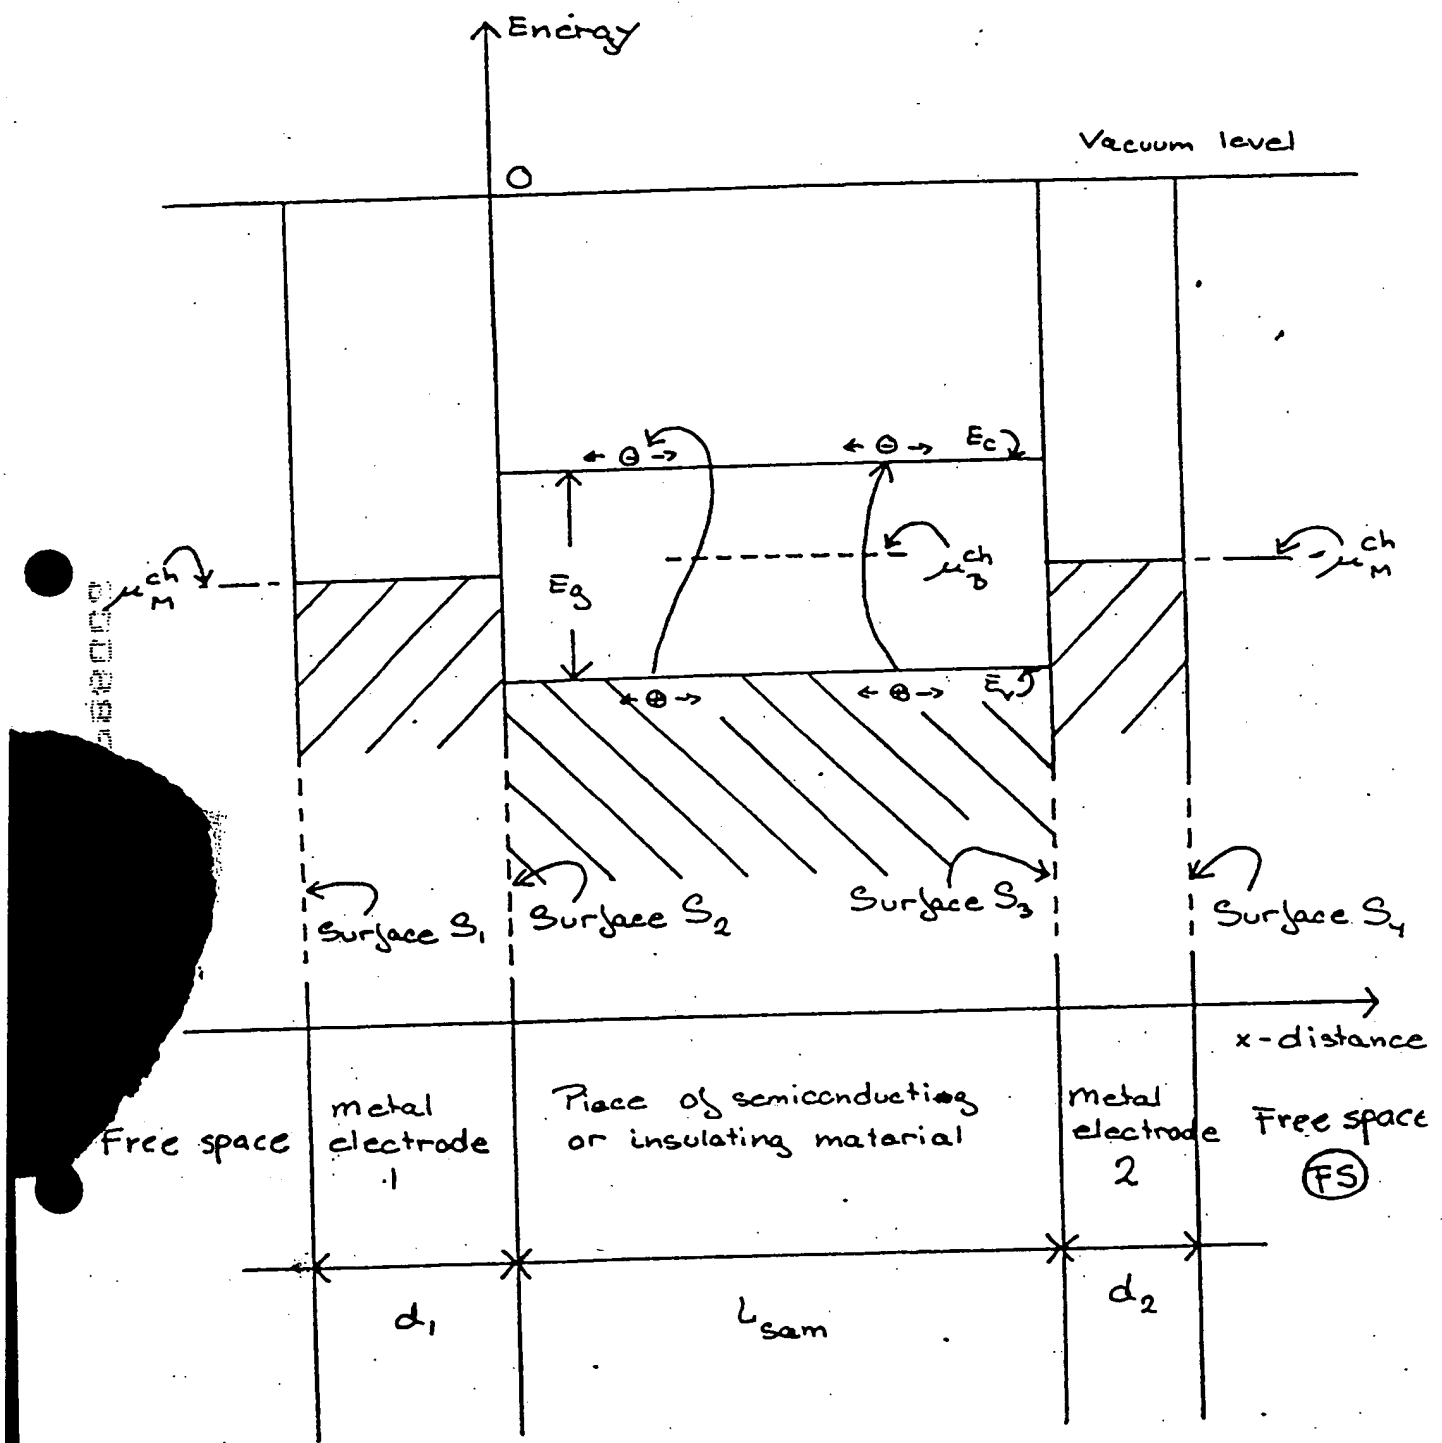 Energy
Vacuum level
O
E_c
μ_M^ch
E_g
μ_B^ch
μ_M^ch
E_v
Surface S_1
Surface S_2
Surface S_3
Surface S_4
x-distance
Free space
metal
electrode
1
Piece of semiconducting
or insulating material
metal
electrode
2
Free space
FS
d_1
L_sam
d_2